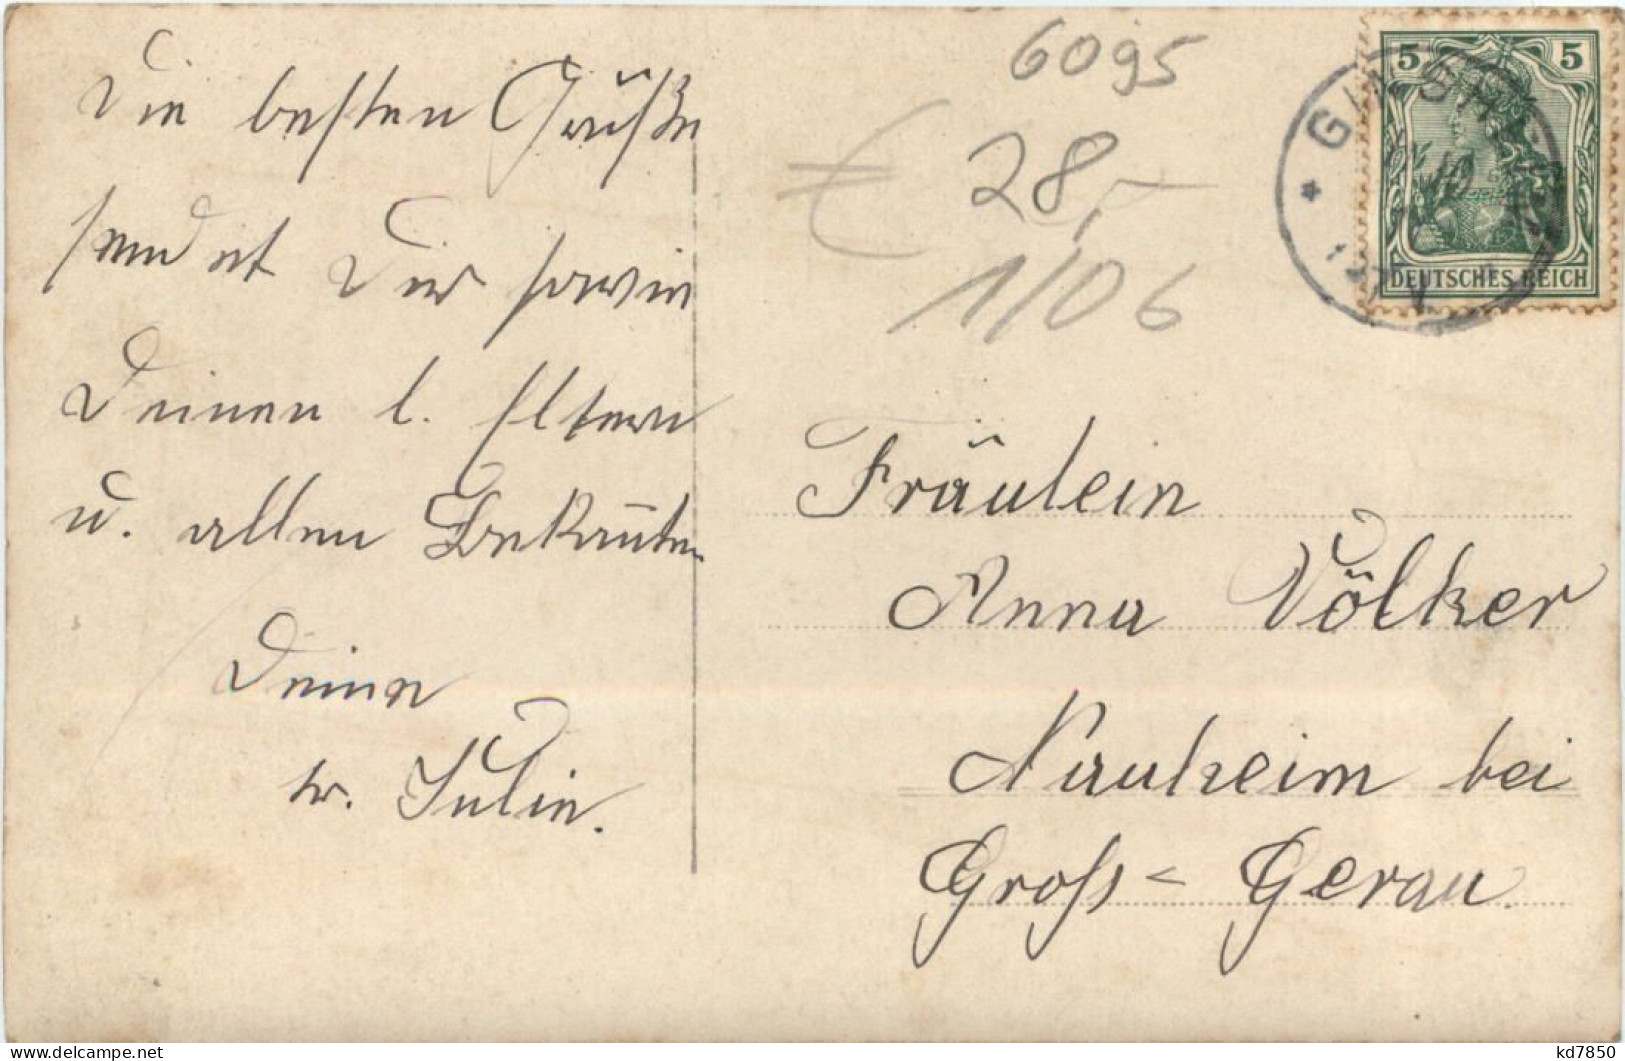 Die besten Grüße
sendet Dir sowie
Deinen l. Eltern
u. allen Bekannten
Deine
tr. Julie.
6095
€ 28,-
1/06
5 5
DEUTSCHES REICH
Fräulein
Anna Völker
Nauheim bei
Gross= Gerau.
kd7850